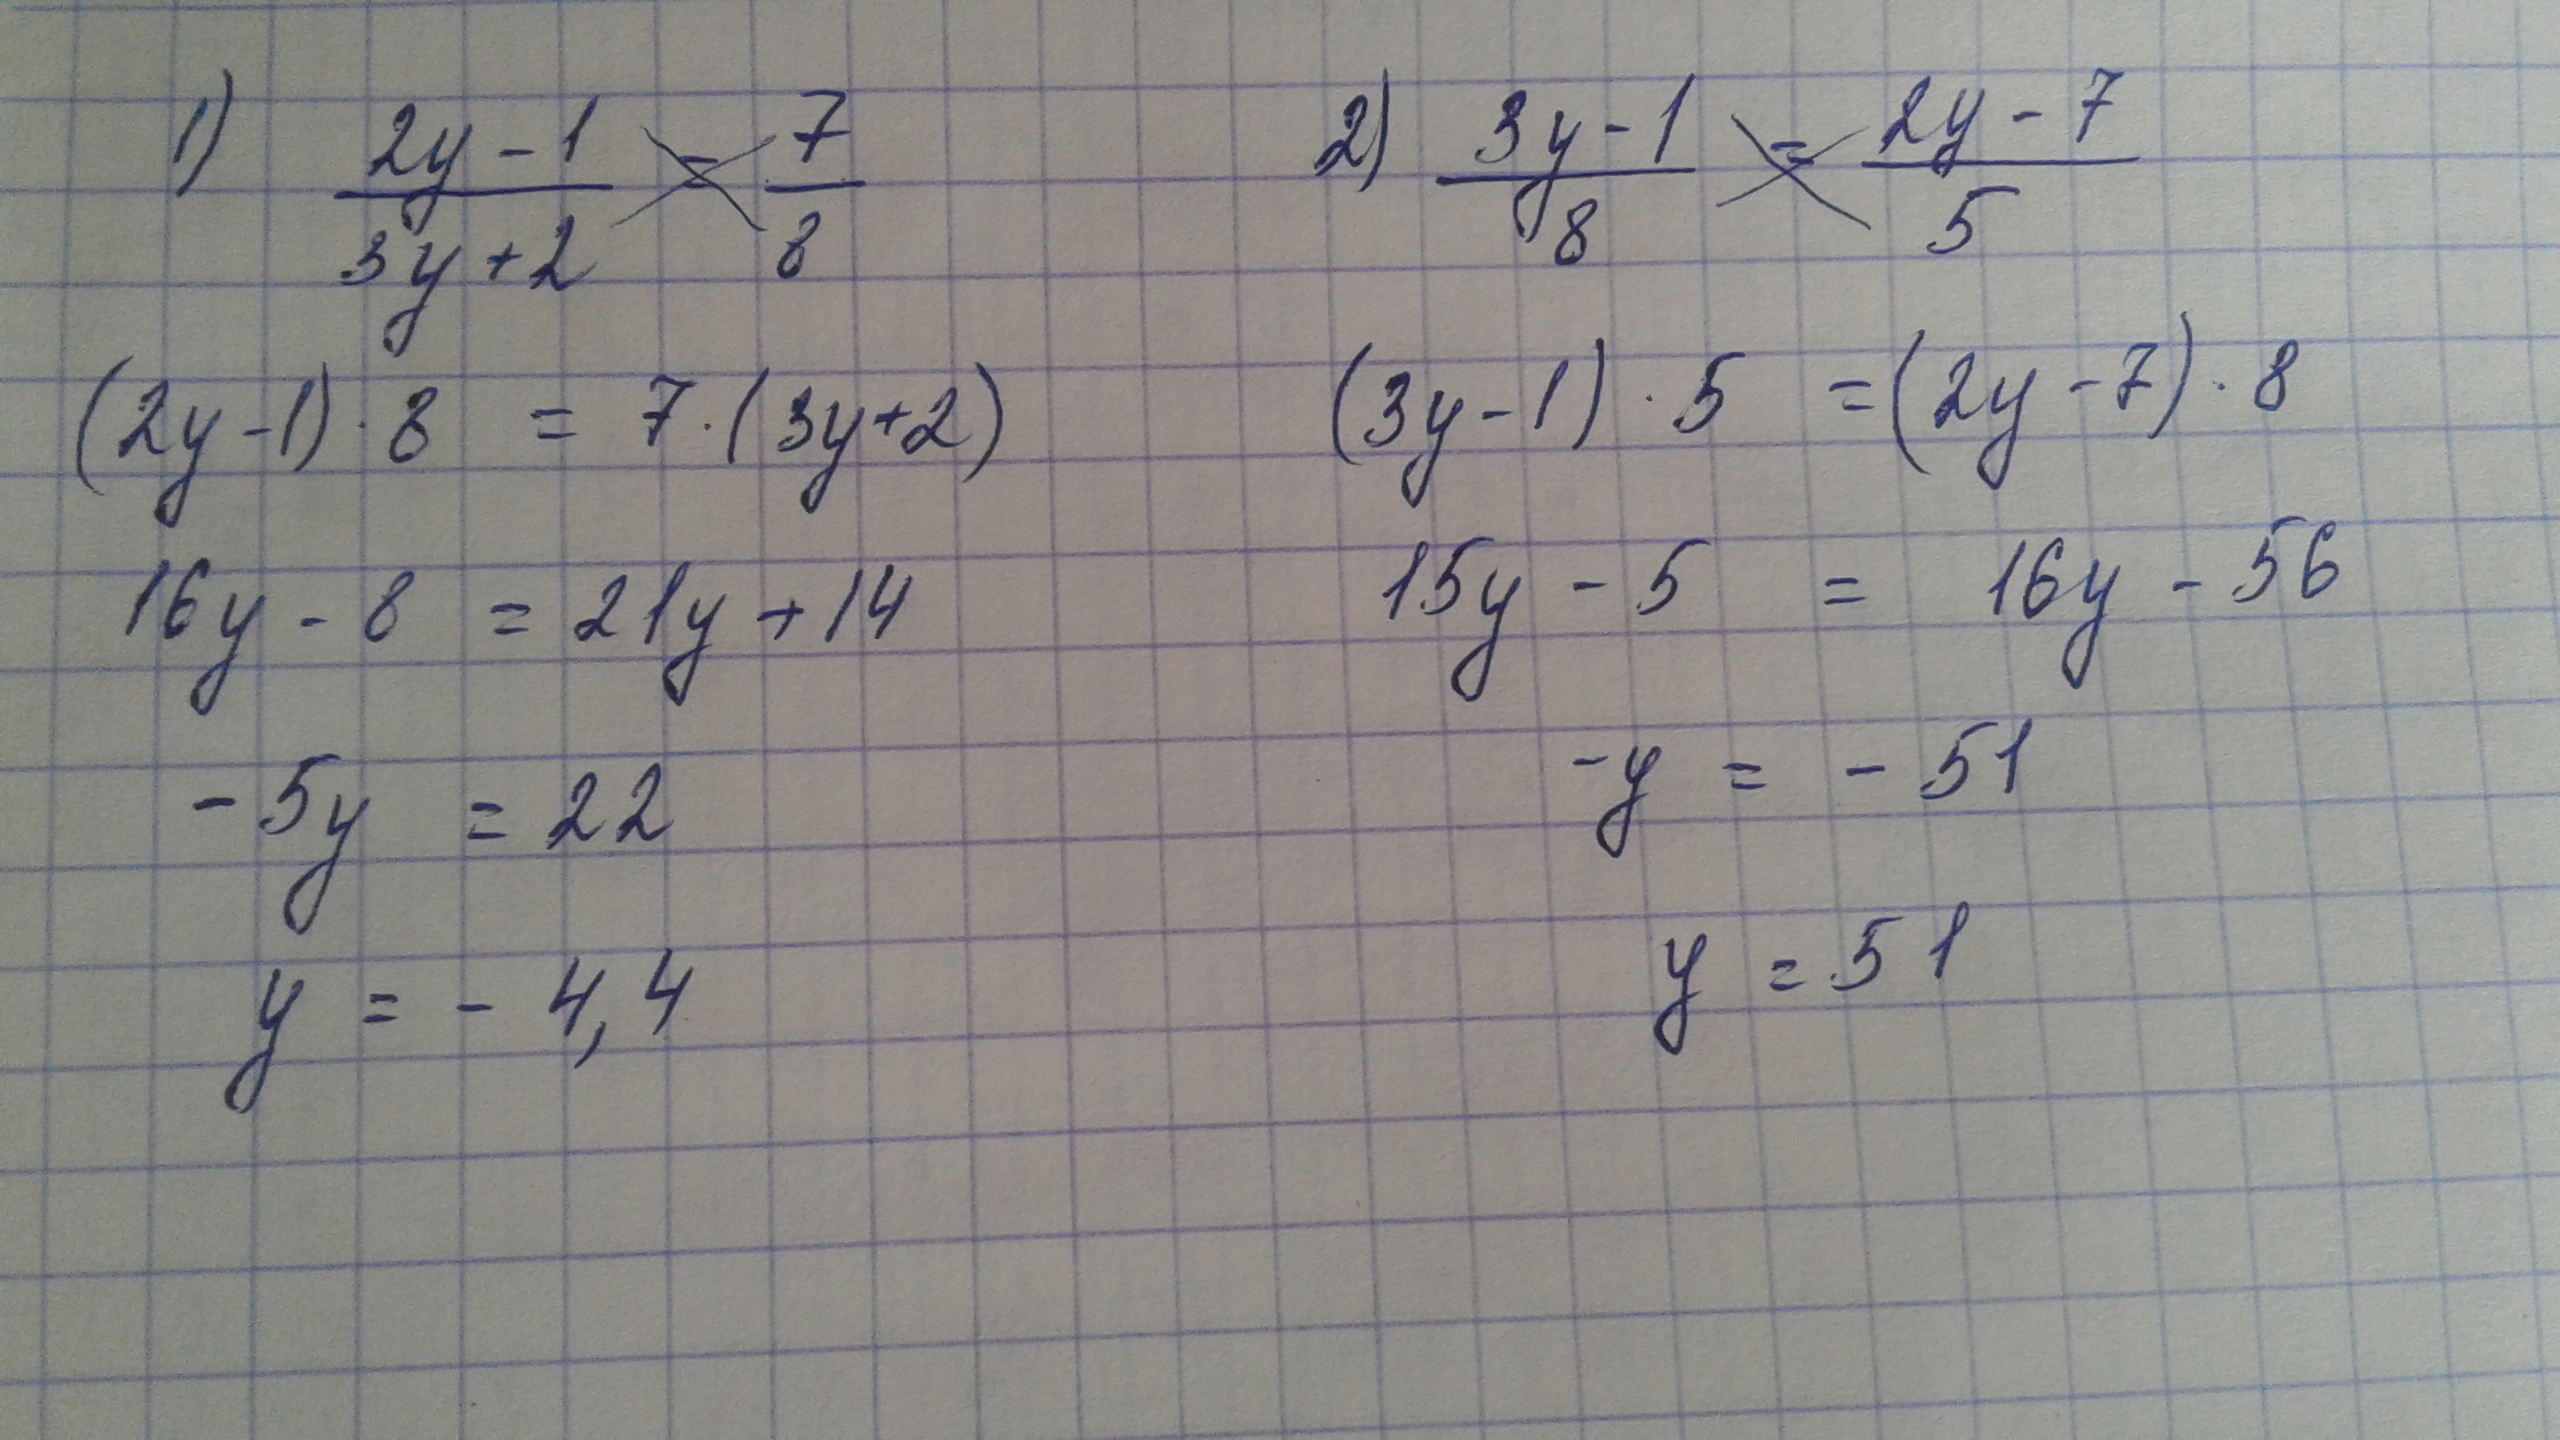 1) (2y-1)/(3y+2) = 7/8
(2y-1)·8 = 7·(3y+2)
16y-8 = 21y+14
-5y = 22
y = -4,4
2) (3y-1)/8 = (2y-7)/5
(3y-1)·5 = (2y-7)·8
15y-5 = 16y-56
-y = -51
y = 51